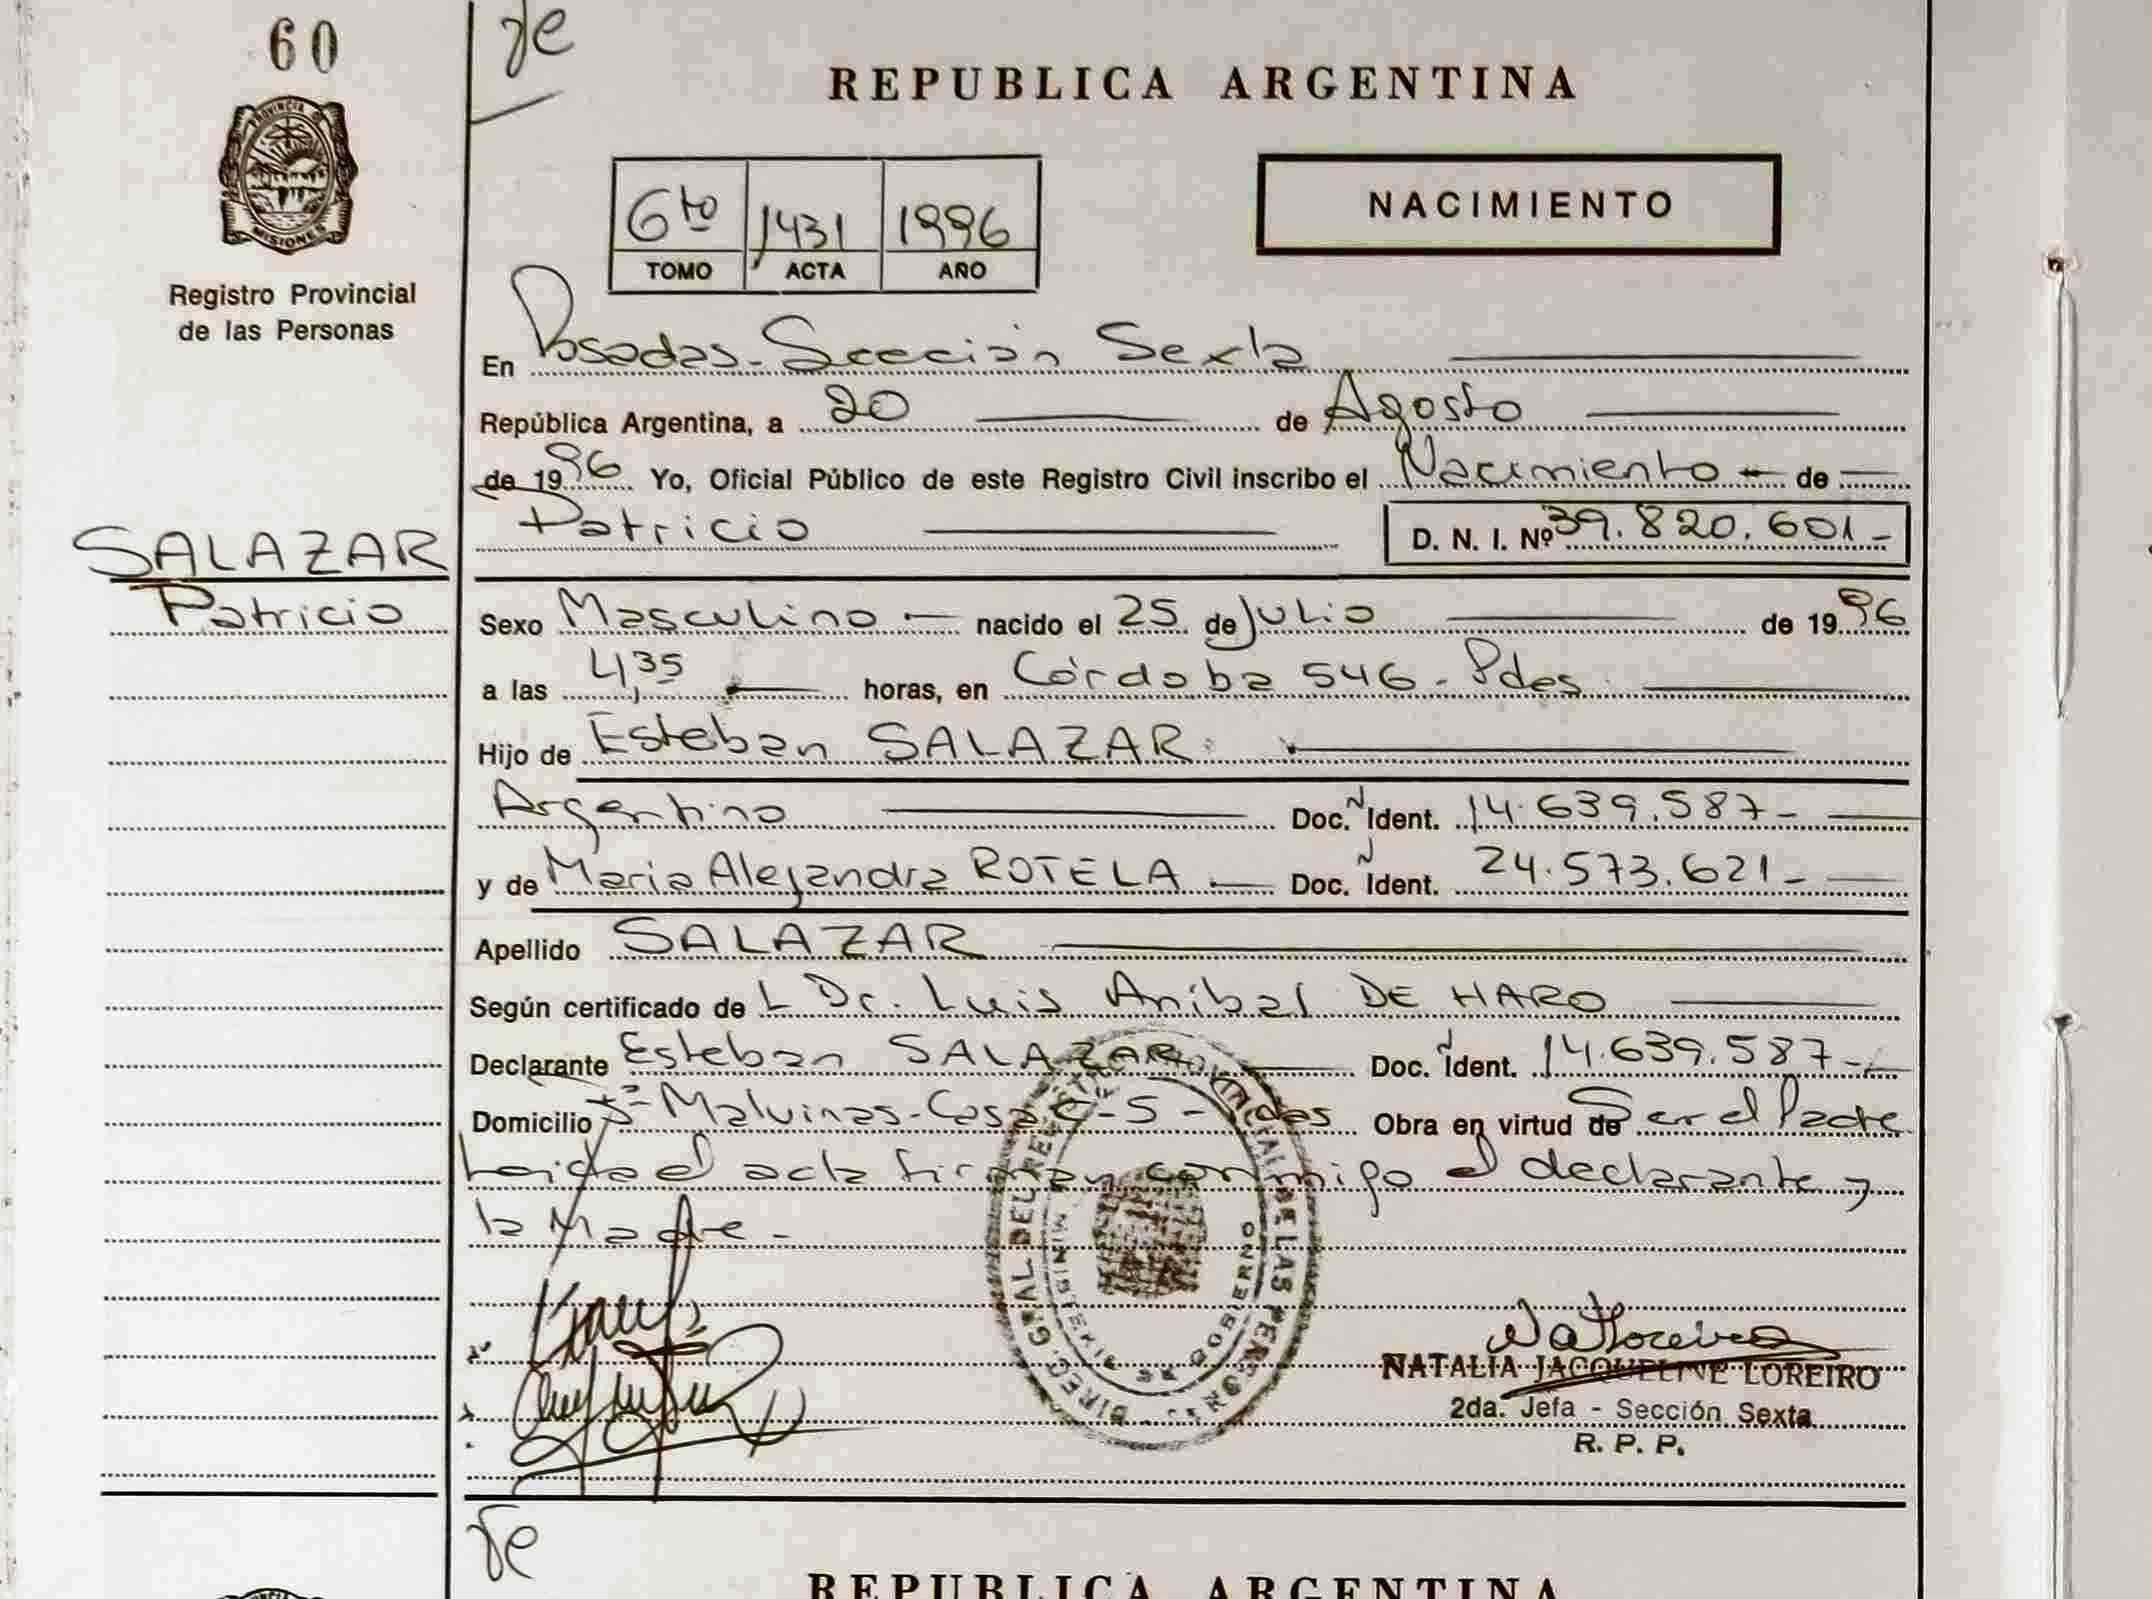 60
de
REPUBLICA ARGENTINA
PROVINCIA DE
MISIONES
Registro Provincial
de las Personas
6to 1431 1996
TOMO ACTA AÑO
NACIMIENTO
En Posadas - Sección Sexta
República Argentina, a 20 de Agosto
de 1996 Yo, Oficial Público de este Registro Civil inscribo el Nacimiento - de
Patricio D. N. I. Nº 39.820.601-
SALAZAR
Patricio
Sexo Masculino - nacido el 25 de Julio de 1996
a las 4,35 horas, en Córdoba 546 - Pdas.
Hijo de Esteban SALAZAR
Argentino Doc. N Ident. 14.639.587-
y de Maria Alejandra ROTELA - Doc. N Ident. 24.573.621-
Apellido SALAZAR
Según certificado de L Dr. Luis Aníbal DE HARO
Declarante Esteban SALAZAR Doc. N Ident. 14.639.587-
Domicilio Malvinas - Casa -5- Obra en virtud de Ser el Padre
Leida el acta firman conmigo el declarante y
la Madre -
DIREC. GRAL DEL REGISTRO PROVINCIAL DE LAS PERSONAS
MINISTERIO DE GOBIERNO
NATALIA JACQUELINE LOREIRO
2da. Jefa - Sección Sexta
R. P. P.
REPUBLICA ARGENTINA